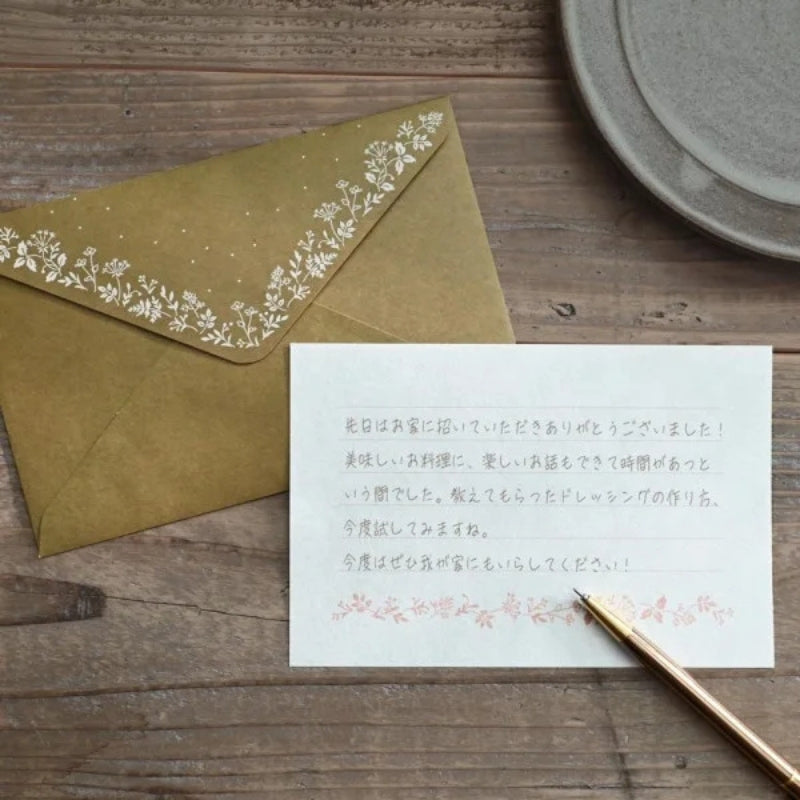 先日はお家に招いていただきありがとうございました！
美味しいお料理に、楽しいお話もできて時間があっと
いう間でした。教えてもらったドレッシングの作り方、
今度試してみますね。
今度はぜひ我が家にもいらしてください！